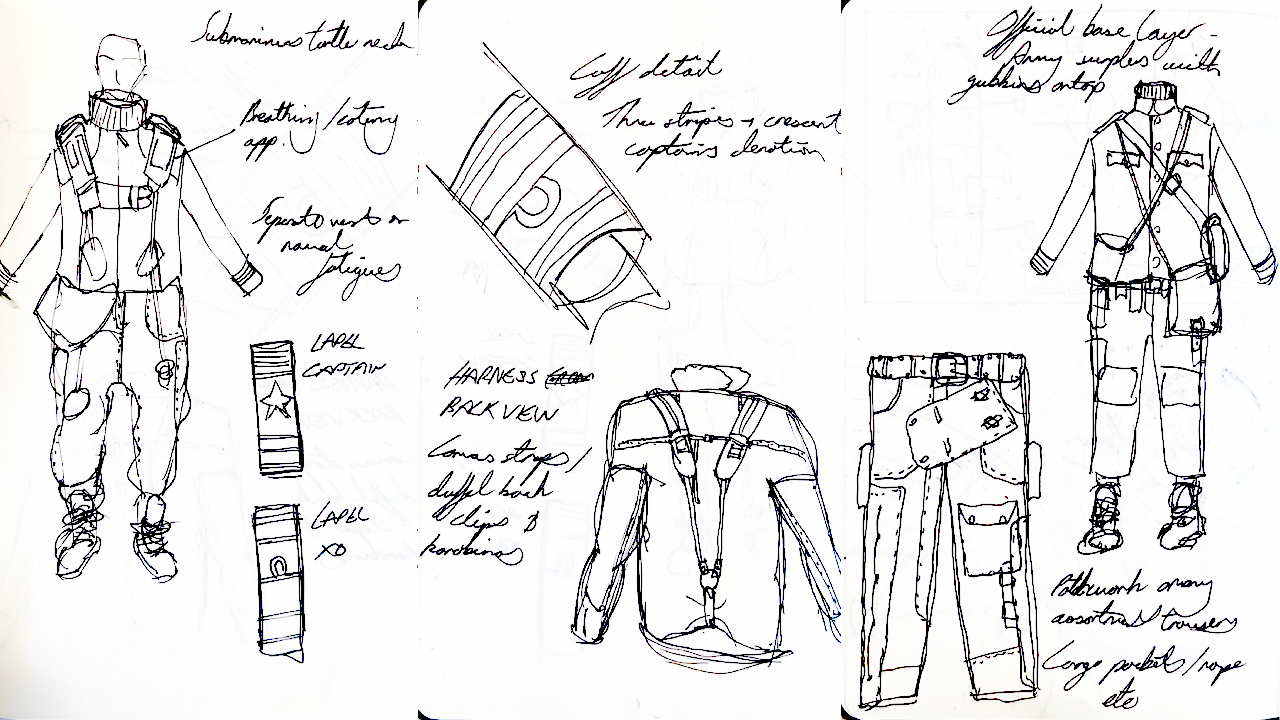 Submariners turtle neck
Breathing /
app.
vest or
naval
fatigues
LAPEL
CAPTAIN
LAPEL
XO
Cuff detail
Three stripes + crescent
captains
HARNESS
BACK VIEW
Canvas straps /
duffel bach
clips &
karabinas
Official base layer -
Army surplus with
gubbins ontop
Patchwork army
assorted trousers
Large pockets / rope
etc